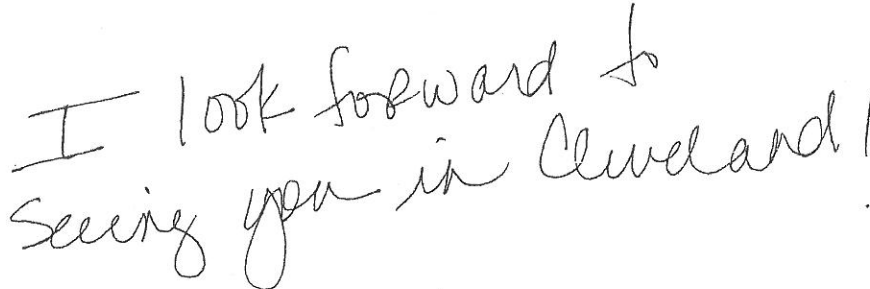 I look forward to
seeing you in Cleveland!